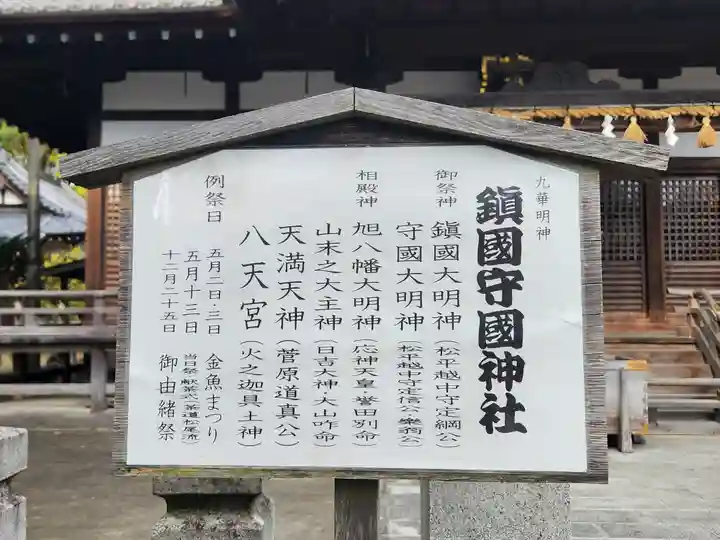 九華明神
鎮國守國神社
御祭神
鎮國大明神（松平越中守定綱公）
守國大明神（松平越中守定信公・樂翁公）
相殿神
旭八幡大明神（応神天皇・誉田別命）
山末之大主神（日吉大神・大山咋命）
天満天神（菅原道真公）
八天宮（火之迦具土神）
例祭日
五月二日・三日　金魚まつり
五月十三日　当日祭・献茶式（茶道松尾流
十二月二十五日　御由緒祭